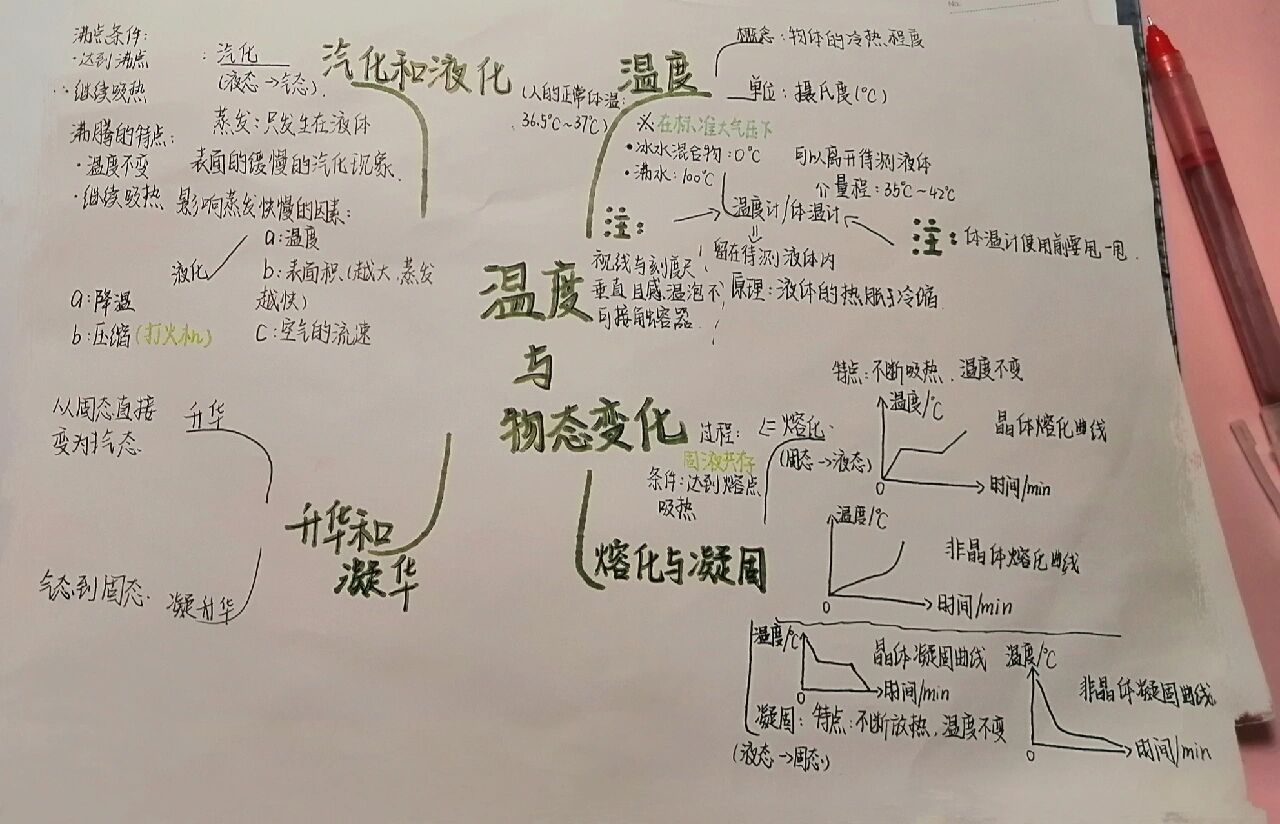 温度
与
物态变化
汽化和液化
沸点条件:
·达到沸点
∴继续吸热
沸腾的特点:
·温度不变
·继续吸热
:汽化
(液态→气态).
蒸发:只发生在液体
表面的缓慢的汽化现象.
影响蒸发快慢的因素:
a:温度
b:表面积(越大,蒸发
越快)
c:空气的流速
液化
a:降温
b:压缩(打火机)
温度
概念:物体的冷热程度
单位:摄氏度(℃)
(人的正常体温:
36.5℃~37℃)
※在标准大气压下
·冰水混合物:0℃
·沸水:100℃
可以离开待测液体
介量程:35℃~42℃
温度计/体温计
注:
视线与刻度尺
垂直且感温泡不
可接触容器.
留在待测液体内
原理:液体的热胀冷缩
注:体温计使用前要甩一甩.
升华和
凝华
升华
从固态直接
变为汽态.
凝升华
气态到固态.
熔化与凝固
过程:
固液共存
条件:达到熔点
吸热
熔化.
(固态→液态)
特点:不断吸热、温度不变
温度/℃
晶体熔化曲线
0
时间/min
温度/℃
非晶体熔化曲线
0
时间/min
温度/℃
晶体凝固曲线
0
时间/min
温度/℃
非晶体凝固曲线
0
时间/min
凝固:特点:不断放热,温度不变
(液态→固态)